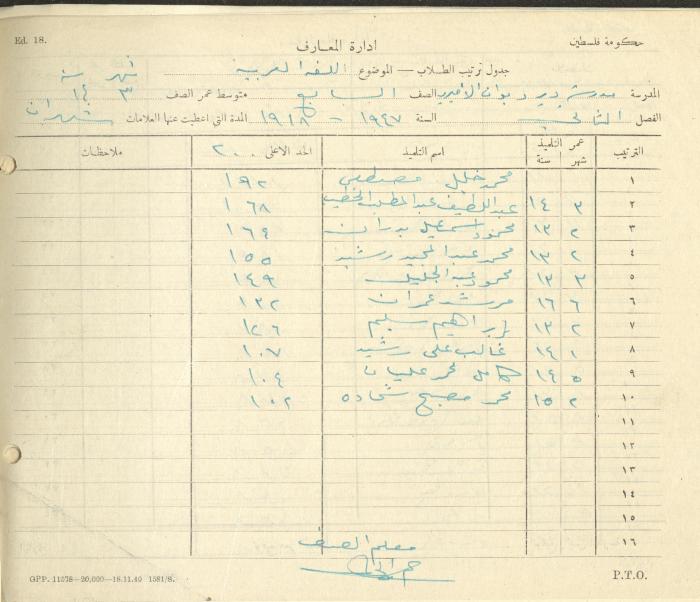 Ed. 18.
حكومة فلسطين
ادارة المعارف
جدول ترتيب الطلاب — الموضوع اللغة العربية
شهر سنة
المدرسة مدرسة دير ديوان الأميرية الصف السابع متوسط عمر الصف ٣ ١٤
الفصل الثاني السنة ١٩٤٧ - ١٩١٨ المدة التي اعطيت عنها العلامات شهران
الترتيب عمر التلميذ شهر سنة اسم التلميذ الحد الاعلى ٢٠٠ ملاحظات
١ محمد خليل مصطفى ١٩٢
٢ ٣ ١٤ عبد اللطيف عبد المطلب الخطيب ١٦٨
٣ ٢ ١٣ محمود اسمعيل بدران ١٦٤
٤ ٢ ١٣ محمد عبد المجيد رشيد ١٥٥
٥ ٣ ١٣ محمود عبد الجليل ١٤٩
٦ ٦ ١٦ مرشد عمران ١٣٢
٧ ٢ ١٣ إبراهيم سليم ١٢٦
٨ ١ ١٤ غالب علي رشيد ١٠٧
٩ ٥ ١٤ كامل محمد عليان ١٠٤
١٠ ٢ ١٥ محمد مصبح شحاده ١٠٢
١١
١٢
١٣
١٤
١٥
١٦
معلم الصف
GPP. 11578—20,000—18.11.40 1581/S.
P.T.O.